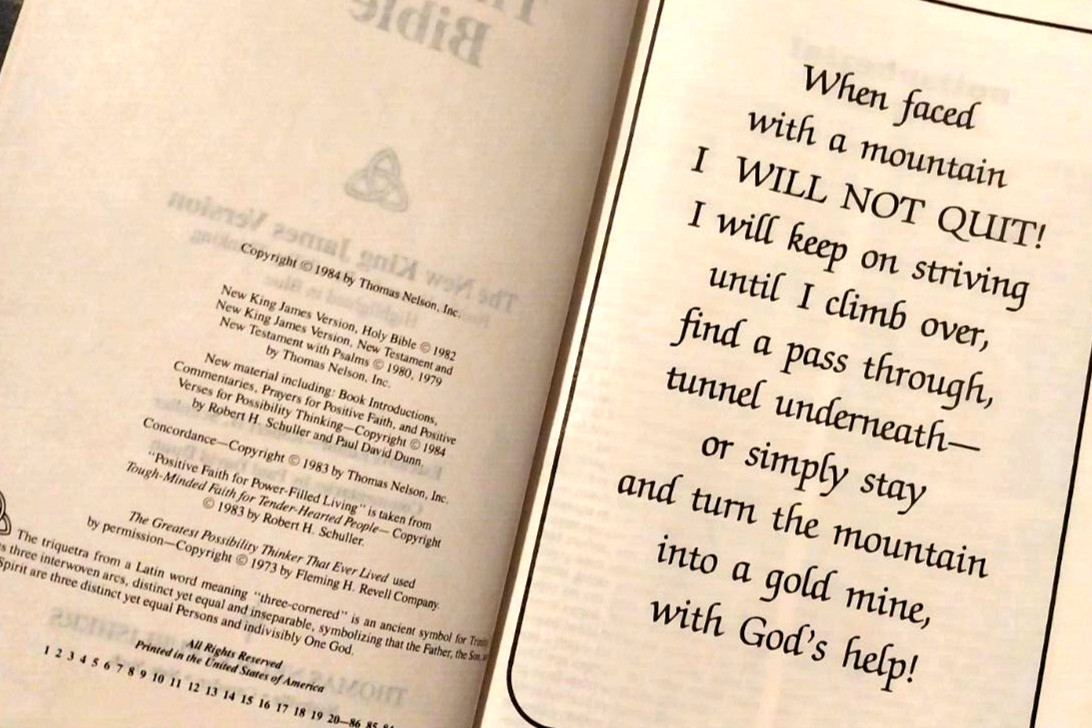 Copyright © 1984 by Thomas Nelson, Inc.
New King James Version, Holy Bible © 1982
New King James Version, New Testament and
New Testament with Psalms © 1980, 1979
by Thomas Nelson, Inc.
New material including: Book Introductions,
Commentaries, Prayers for Positive Faith, and Positive
Verses for Possibility Thinking—Copyright © 1984
by Robert H. Schuller and Paul David Dunn.
Concordance—Copyright © 1983 by Thomas Nelson, Inc.
"Positive Faith for Power-Filled Living" is taken from
Tough-Minded Faith for Tender-Hearted People—Copyright
© 1983 by Robert H. Schuller.
The Greatest Possibility Thinker That Ever Lived used
by permission—Copyright © 1973 by Fleming H. Revell Company.
The triquetra from a Latin word meaning "three-cornered" is an ancient symbol for
three interwoven arcs, distinct yet equal and inseparable, symbolizing that the Father, the Son,
Spirit are three distinct yet equal Persons and indivisibly One God.
All Rights Reserved
Printed in the United States of America
1 2 3 4 5 6 7 8 9 10 11 12 13 14 15 16 17 18 19 20—86 85
When faced
with a mountain
I WILL NOT QUIT!
I will keep on striving
until I climb over,
find a pass through,
tunnel underneath—
or simply stay
and turn the mountain
into a gold mine,
with God's help!